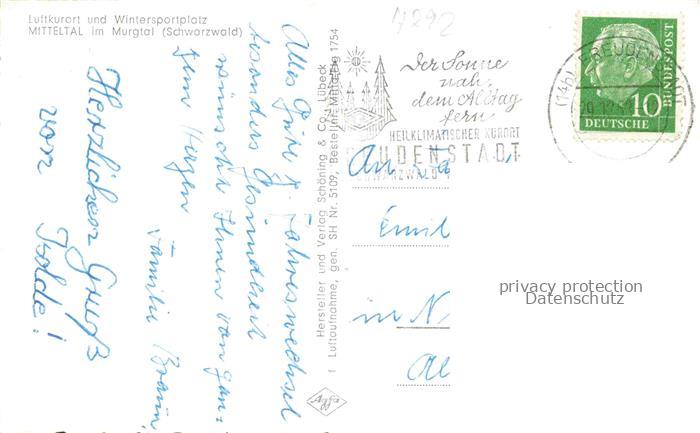 Luftkurort und Wintersportplatz
MITTELTAL im Murgtal (Schwarzwald)
4292
Alles Gute z. Jahreswechsel
besonders Gesundheit
wünscht Ihnen von gan-
zem Herzen
Familie Braun
Herzlichen Gruß
von
Isolde!
Hersteller und Verlag Schöning & Co., Lübeck
f Luftaufnahme, gen. SH Nr. 5109, Bestell nr. Mitteltal 1754
Agfa
Der Sonne
nah,
dem Alltag
fern
HEILKLIMATISCHER KURORT
FREUDENSTADT
SCHWARZWALD
(14b) FREUDENSTADT
10
DEUTSCHE
BUNDESPOST
An
Emil
in N
Al
privacy protection
Datenschutz